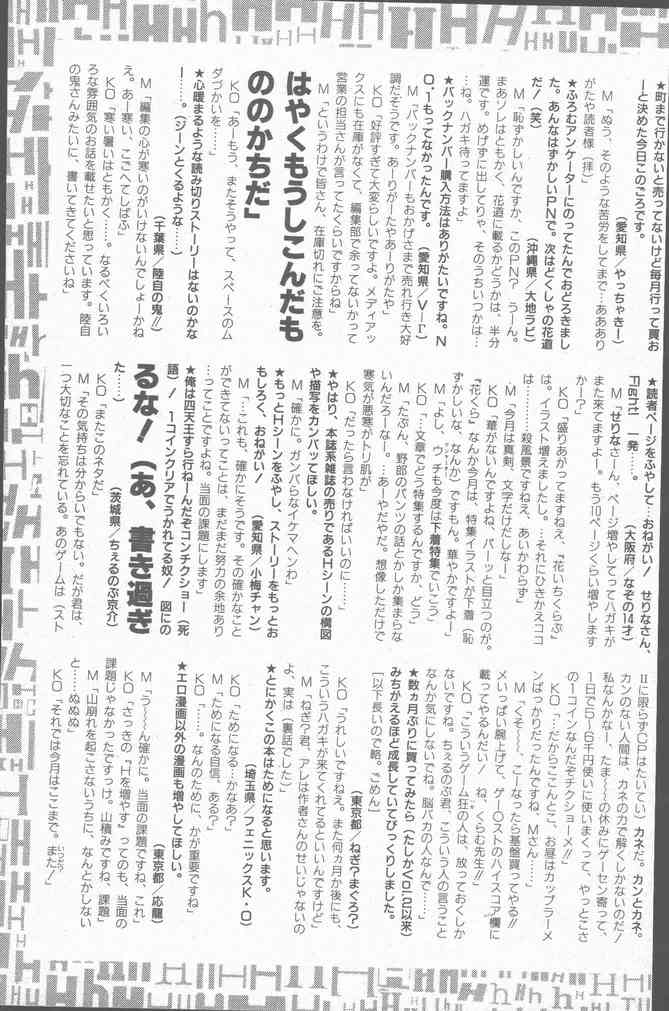 ★町まで行かないと売ってないけど毎月行って買お
ーと決めた今日このごろです。
(愛知県／やっちゃきー)
M「ぬう、そのような苦労をしてまで…あああり
がたや読者様(拝)」
★ふろむアンケーターにのってたんでおどろきまし
た。あんなはずかしいPNで。次はどくしゃの花道
だ！(笑)
(沖縄県／大地ラビ)
M「恥ずかしいんですか、このPN？ うーん。
まあソレはともかく、花道に載るかどうかは、半分
運です。めげずに出してりゃ、そのうちいつかは…
…ね。ハガキ待ってますよ」
★バックナンバー購入方法はありがたいですね。N
O.1もってなかったんです。
(愛知県／V－Γ)
M「バックナンバーもおかげさまで売れ行き大好
調だそうです。あーりがーたやあーりがたや」
KO「好評すぎて大変らしいですよ。メディアッ
クスにも在庫がなくて、編集部で余ってないかって
営業の担当さんが言ってたくらいですからね」
M「というわけで皆さん、在庫切れにご注意を。
はやくもうしこんだも
ののかちだ」
KO「あーもう、またそうやって、スペースのム
ダづかいを……」
★心暖まるような読み切りストーリーはないのかな
ー……。(ジーンとくるような……)
(千葉県／陸自の鬼!!)
M「編集の心が寒いのがいけないんでしょーかね
え。あー寒い、こごへてしぼふ」
KO「寒い暑いはともかく……。なるべくいろい
ろな雰囲気のお話を載せたいと思っています。陸自
の鬼さんみたいに、書いてきてくださいね」
★読者ページをふやして…おねがい！ せりなさん、
Fight! 一発……。
(大阪府／なぞの14才)
M「せりなさーん、ページ増やしてってハガキが
また来てますよー。もう10ページくらい増やします
かー？」
KO「盛りあがってますねえ、『花いちくらぶ』
は。イラスト増えましたし。…それにひきかえココ
は……殺風景ですねえ、あいかわらず」
M「今月は真剣、文字だけだしな」
KO「華がないんですよね、パーッと目立つのが。
『花くら』なんか今月は、特集イラストが下着(恥
ずかしいな、なんか)ですもん。華やかですよー」
M「よし、ウチも今度は下着特集でいこう」
KO「…文章でどう特集するんですか、どう」
M「たぶん、野郎のパンツの話とかしか集まらな
いんだろーなー。…あーやだやだ。想像しただけで
寒気が悪寒がトリ肌が」
KO「だったら言わなければいいのに……」
★やはり、本誌系雑誌の売りであるHシーンの構図
や描写をガンバッてほしい。
M「確かに。ガンバらなイケマヘンわ」
★もっとHシーンをふやし、ストーリーをもっとお
もしろく、おねがい！
(愛知県／小梅チャン)
M「…これも、確かにそうです。その確かなこと
ができてないってことは、まだまだ努力の余地あり
…ってことですよね。当面の課題にします」
★俺は四天王すら行ねーんだぞコンチクショー(死
語)！ 1コインクリアでうかれてる奴！ 図にの
るな！(あ、書き過ぎ
た……)
(茨城県／ちぇるのぶ京介)
KO「またこのネタだ」
M「その気持ちは分からいでもない。だが君は、
一つ大切なことを忘れている。あのゲームは(スト
IIに限らずCPはたいてい)カネだ。カンとカネ。
カンのない人間は、カネの力で解くしかないのだ！
私なんかなー、たまーの休みにゲーセン寄って、
1日で5～6千円使いに使いまくって、やっとこさ
の1コインなんだぞチクショーメ!!」
KO「…だからここんとこ、お昼はカップラーメ
ンばっかりだったんですね、Mさん……」
M「くそ～～、こーなったら基盤買ってやる!!
メいっぱい腕上げて、ゲ○ストのハイスコア欄に
載ってやるんだい ね、くらむ先生!!」
KO「こういうゲーム狂の人は、放っておくしか
ないですね。ちぇるのぶ君、こういう人の言うこと
なんか気にしないでね。脳バカの人なんで……」
★数ヵ月ぶりに買ってみたら(たしかVol2以来)
みちがえるほど成長していてびっくりしました。
[以下長いので略。ごめん]
(東京都／ねぎ？まぐろ？)
KO「うれしいですねえ。また何ヵ月か後にも、
こういうハガキが来てくれてるといいんですけど」
M「ねぎ？君、アレは作者さんのせいじゃないの
よ、実は(裏話でした)」
★とにかくこの本はためになると思います。
(埼玉県／フェニックスK・O)
KO「ためになる…かなあ？」
M「ためになる自信、ある？」
KO「……。なんのために、かが重要ですね」
★エロ漫画以外の漫画も増やしてほしい。
(東京都／応龍)
M「う～～ん確かに。当面の課題ですね、これ」
KO「さっきの『Hを増やす』ってのも、当面の
課題じゃなかったですっけ。山積みですね、課題」
M「山崩れを起こさないうちに、なんとかしない
と……ぬぬぬ」
KO「それでは今月はここまで。また！」